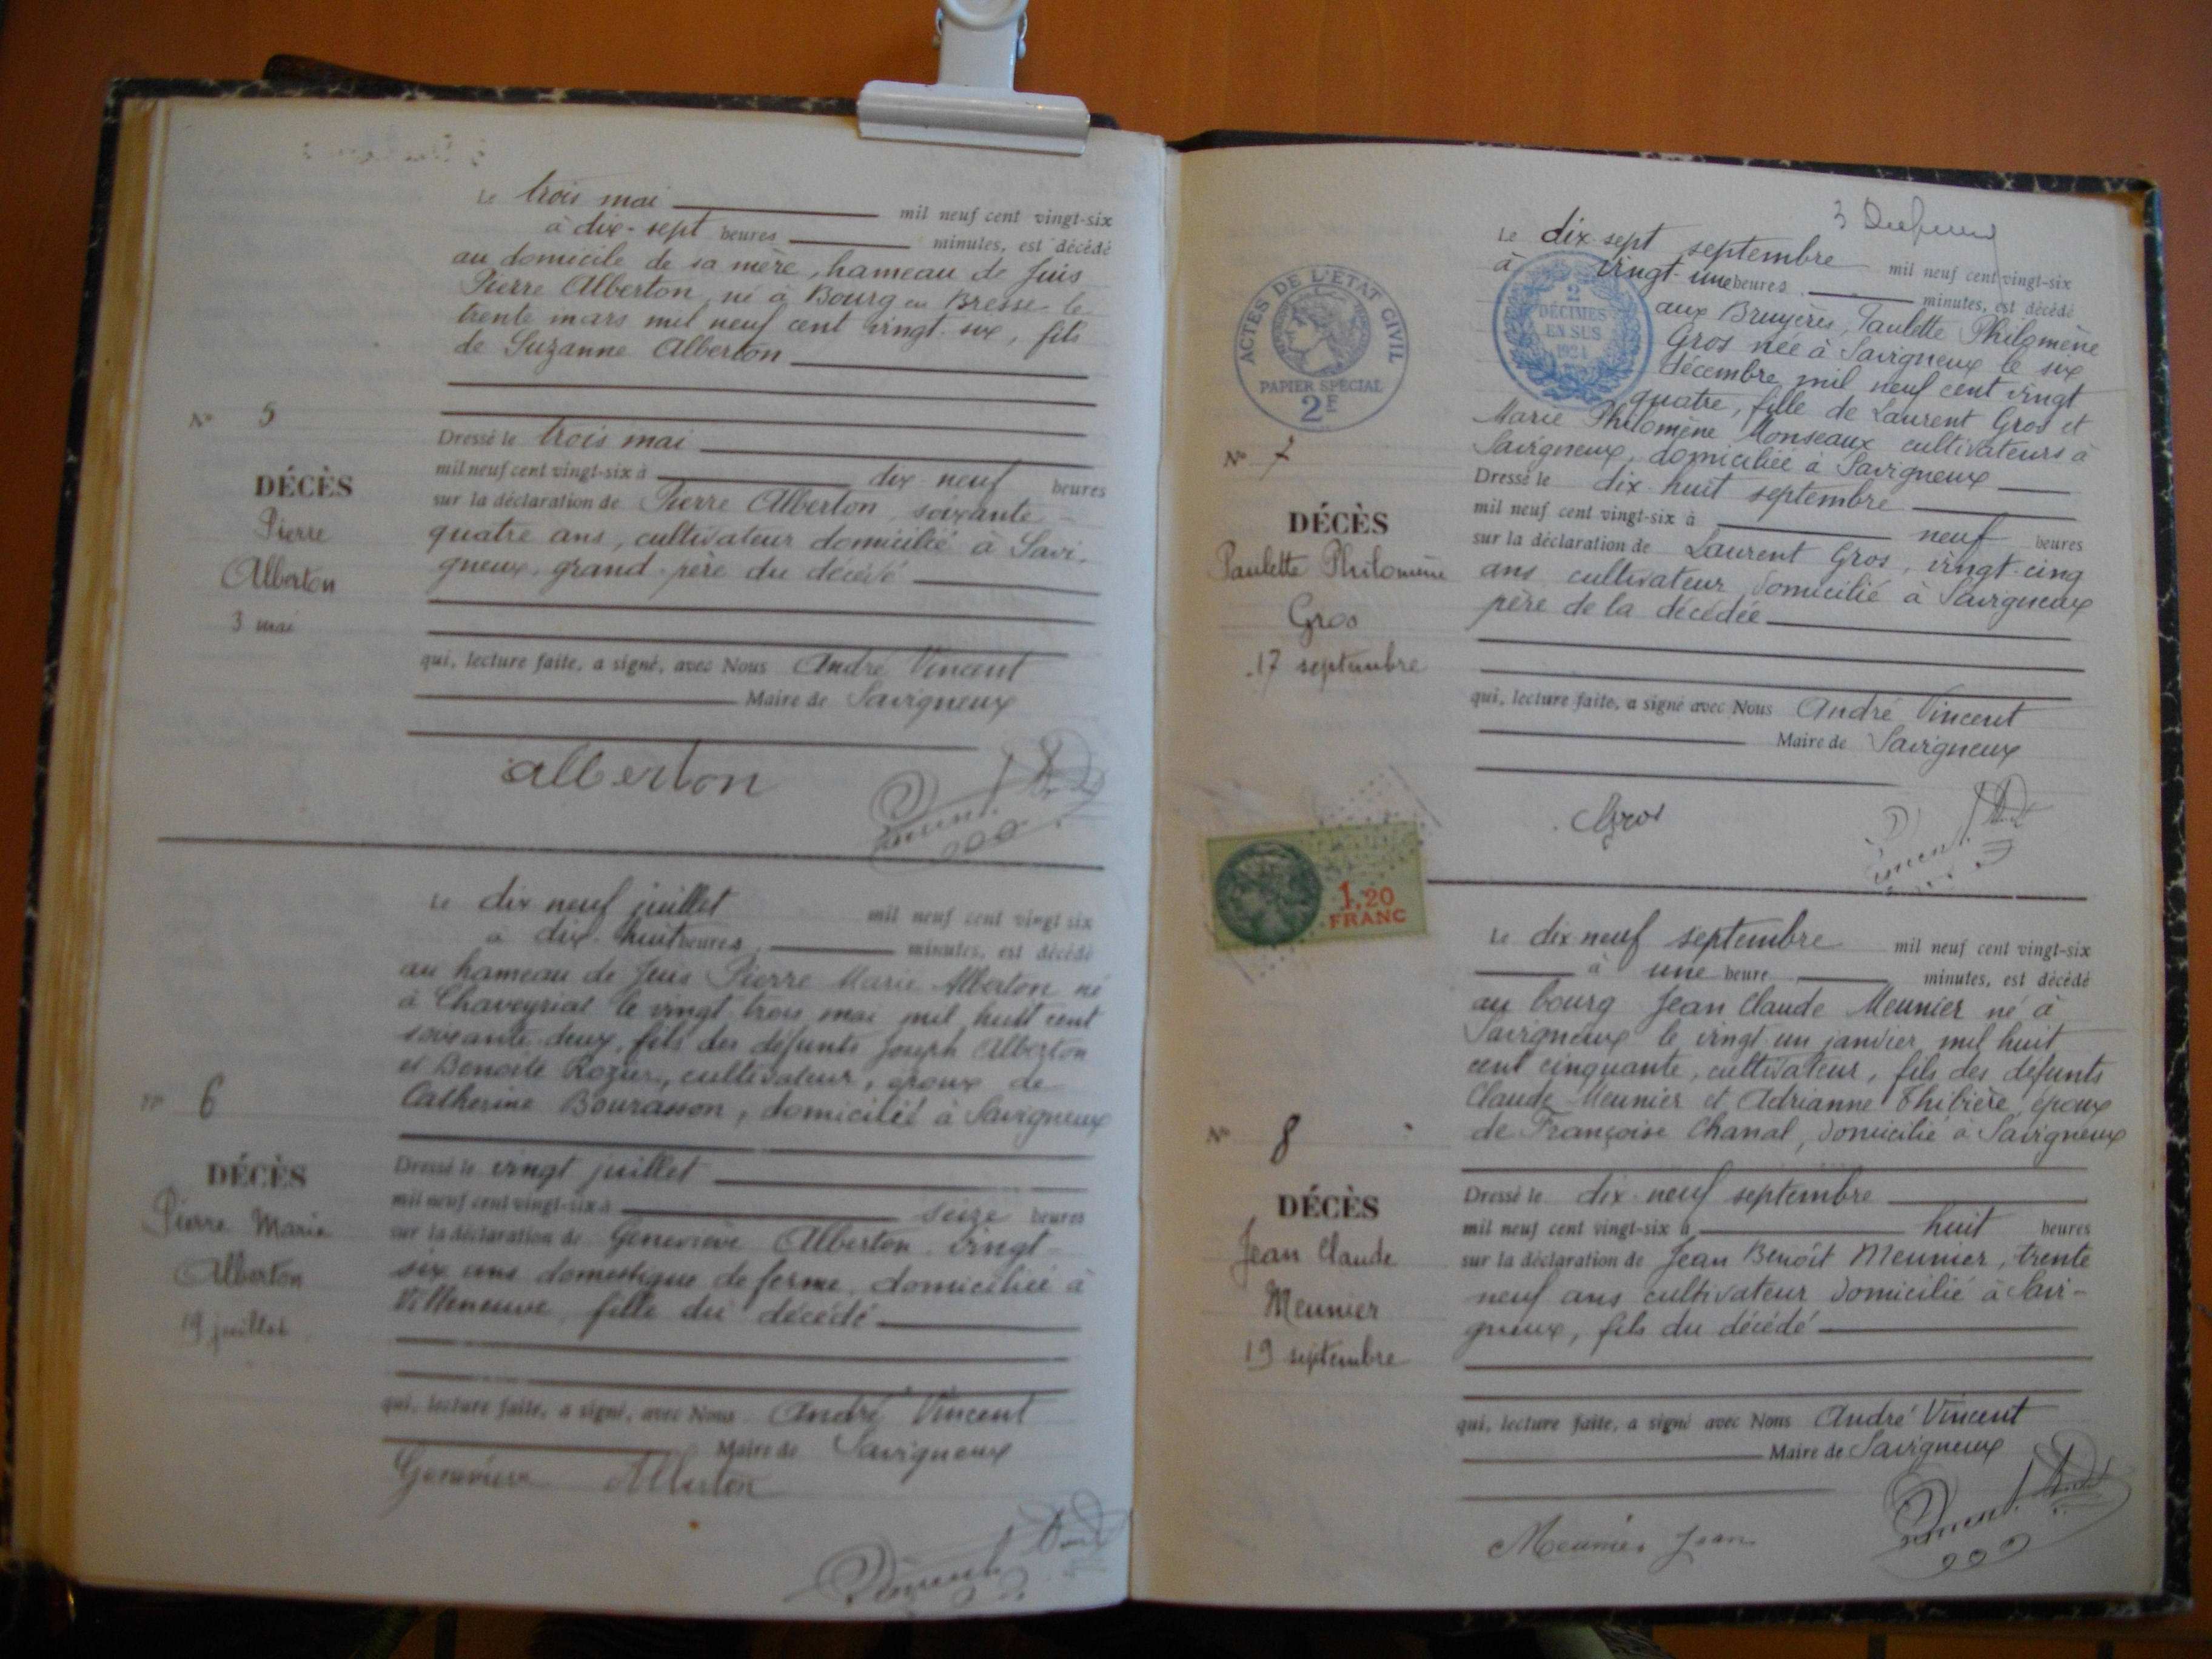 Le trois mai mil neuf cent vingt-six
à dix-sept heures minutes, est décédé
au domicile de sa mère, hameau de Juis
Pierre Alberton, né à Bourg en Bresse le
trente mars mil neuf cent vingt-six, fils
de Suzanne Alberton
Dressé le trois mai
mil neuf cent vingt-six à dix neuf heures
sur la déclaration de Pierre Alberton, soixante
quatre ans, cultivateur domicilié à Savi-
gneux, grand-père du décédé
qui, lecture faite, a signé, avec Nous André Vincent
Maire de Savigneux
alberton
Nº 5
DÉCÈS
Pierre
Alberton
3 mai
Le dix neuf juillet mil neuf cent vingt-six
à dix-huit heures minutes, est décédé
au hameau de Juis Pierre Marie Alberton né
à Chaveyriat le vingt trois mai mil huit cent
soixante deux, fils des défunts Joseph Alberton
et Benoite Rozier, cultivateur, époux de
Catherine, domicilié à Savigneux
Dressé le vingt juillet
mil neuf cent vingt-six à seize heures
sur la déclaration de Geneviève Alberton vingt
six ans domestique de ferme, domiciliée à
Villeneuve, fille du décédé
qui, lecture faite, a signé, avec Nous André Vincent
Maire de Savigneux
Geneviève Alberton
Nº 6
DÉCÈS
Pierre Marie
Alberton
19 juillet
ACTES DE L'ÉTAT CIVIL
PAPIER SPÉCIAL
2F
2
DÉCIMES
EN SUS
Le dix-sept septembre mil neuf cent vingt-six
à vingt-une heures minutes, est décédé
aux Bruyères, Paulette Philomène
Gros née à Savigneux le six
décembre mil neuf cent vingt
quatre, fille de Laurent Gros et
Marie Philomène Monseaux cultivateurs à
Savigneux, domiciliée à Savigneux
Dressé le dix-huit septembre
mil neuf cent vingt-six à neuf heures
sur la déclaration de Laurent Gros, vingt-cinq
ans cultivateur domicilié à Savigneux
père de la décédée
qui, lecture faite, a signé avec Nous André Vincent
Maire de Savigneux
Gros
Nº 7
DÉCÈS
Paulette Philomène
Gros
17 septembre
1,20
FRANC
Le dix neuf septembre mil neuf cent vingt-six
à une heure minutes, est décédé
au bourg Jean Claude Meunier né à
Savigneux le vingt-un janvier mil huit
cent cinquante, cultivateur, fils des défunts
Claude Meunier et Adrianne Thibière, époux
de Françoise Chanal, domicilié à Savigneux
Dressé le dix-neuf septembre
mil neuf cent vingt-six à huit heures
sur la déclaration de Jean Benoît Meunier, trente
neuf ans cultivateur domicilié à Savi-
gneux, fils du décédé
qui, lecture faite, a signé avec Nous André Vincent
Maire de Savigneux
Meunier Jean
Nº 8
DÉCÈS
Jean Claude
Meunier
19 septembre